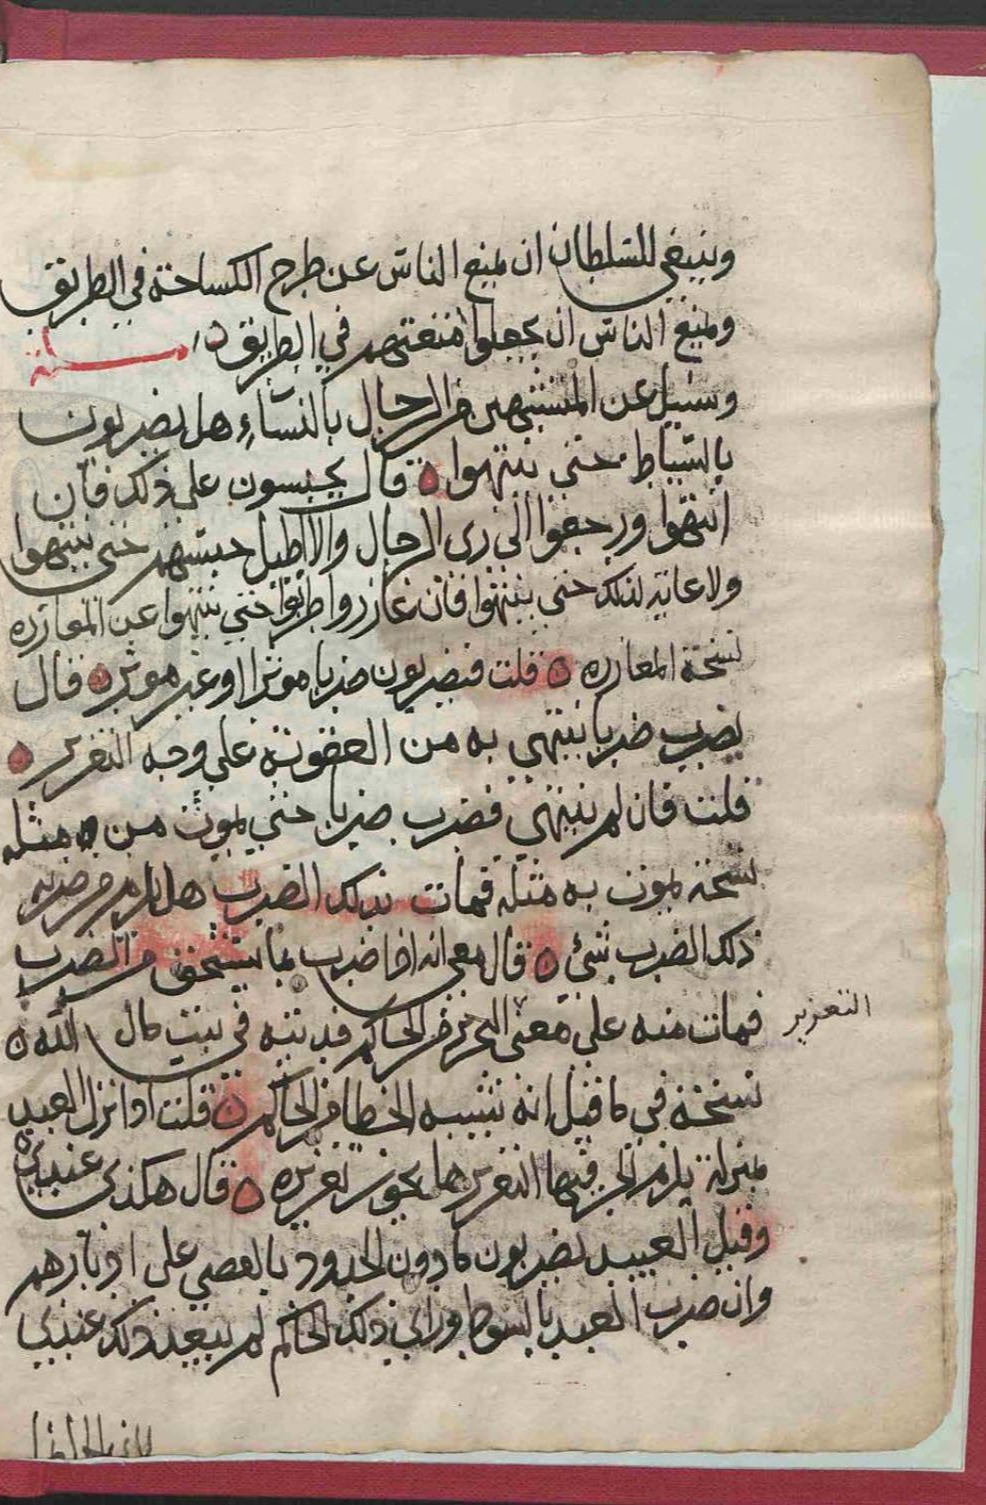 وينبغي للسلطان ان يمنع الناس عن طرح الكساحة في الطريق
ويمنع الناس ان يجعلوا امتعتهم في الطريق ه مسئلة
وسئل عن المتشبهين من الرجال بالنساء هل يضربون
بالسياط حتى ينتهوا ه قال يحبسون على ذلك فان
انتهوا ورجعوا الى زي الرجال والا اطيل حبسهم حتى ينتهوا
ولا غاية لذلك حتى ينتهوا فان عازروا حتى ينتهوا عن المعازره
نسخة المعازره ه قلت فيضربون ضربا موثرا او غير موثر ه قال
يضرب ضربا ينتهي به من العقوبة على وجه التعزير ه
قلت فان لم ينتهي فضرب ضربا حتى يموت من مثله
نسخة يموت به مثله فمات بذلك الضرب هل يلزم من ضربه
ذلك الضرب شئ ه قال معي انه اذا ضرب بما يستحق من الضرب
فمات منه على معنى من الحاكم فديته في بيت مال الله ه
نسخة في ما قيل انه يشبه الخطا من الحاكم ه قلت اذا نزل العبد
منزلة يلزم الحر فيها التعزير هل يجوز تعزيره ه قال هكذى عندي ه
وقيل العبيد يضربون ما دون الحدود بالعصي على ادبارهم
وان ضرب العبد بالسوط وراى ذلك الحاكم لم يبعد ذلك عندي
التعزير